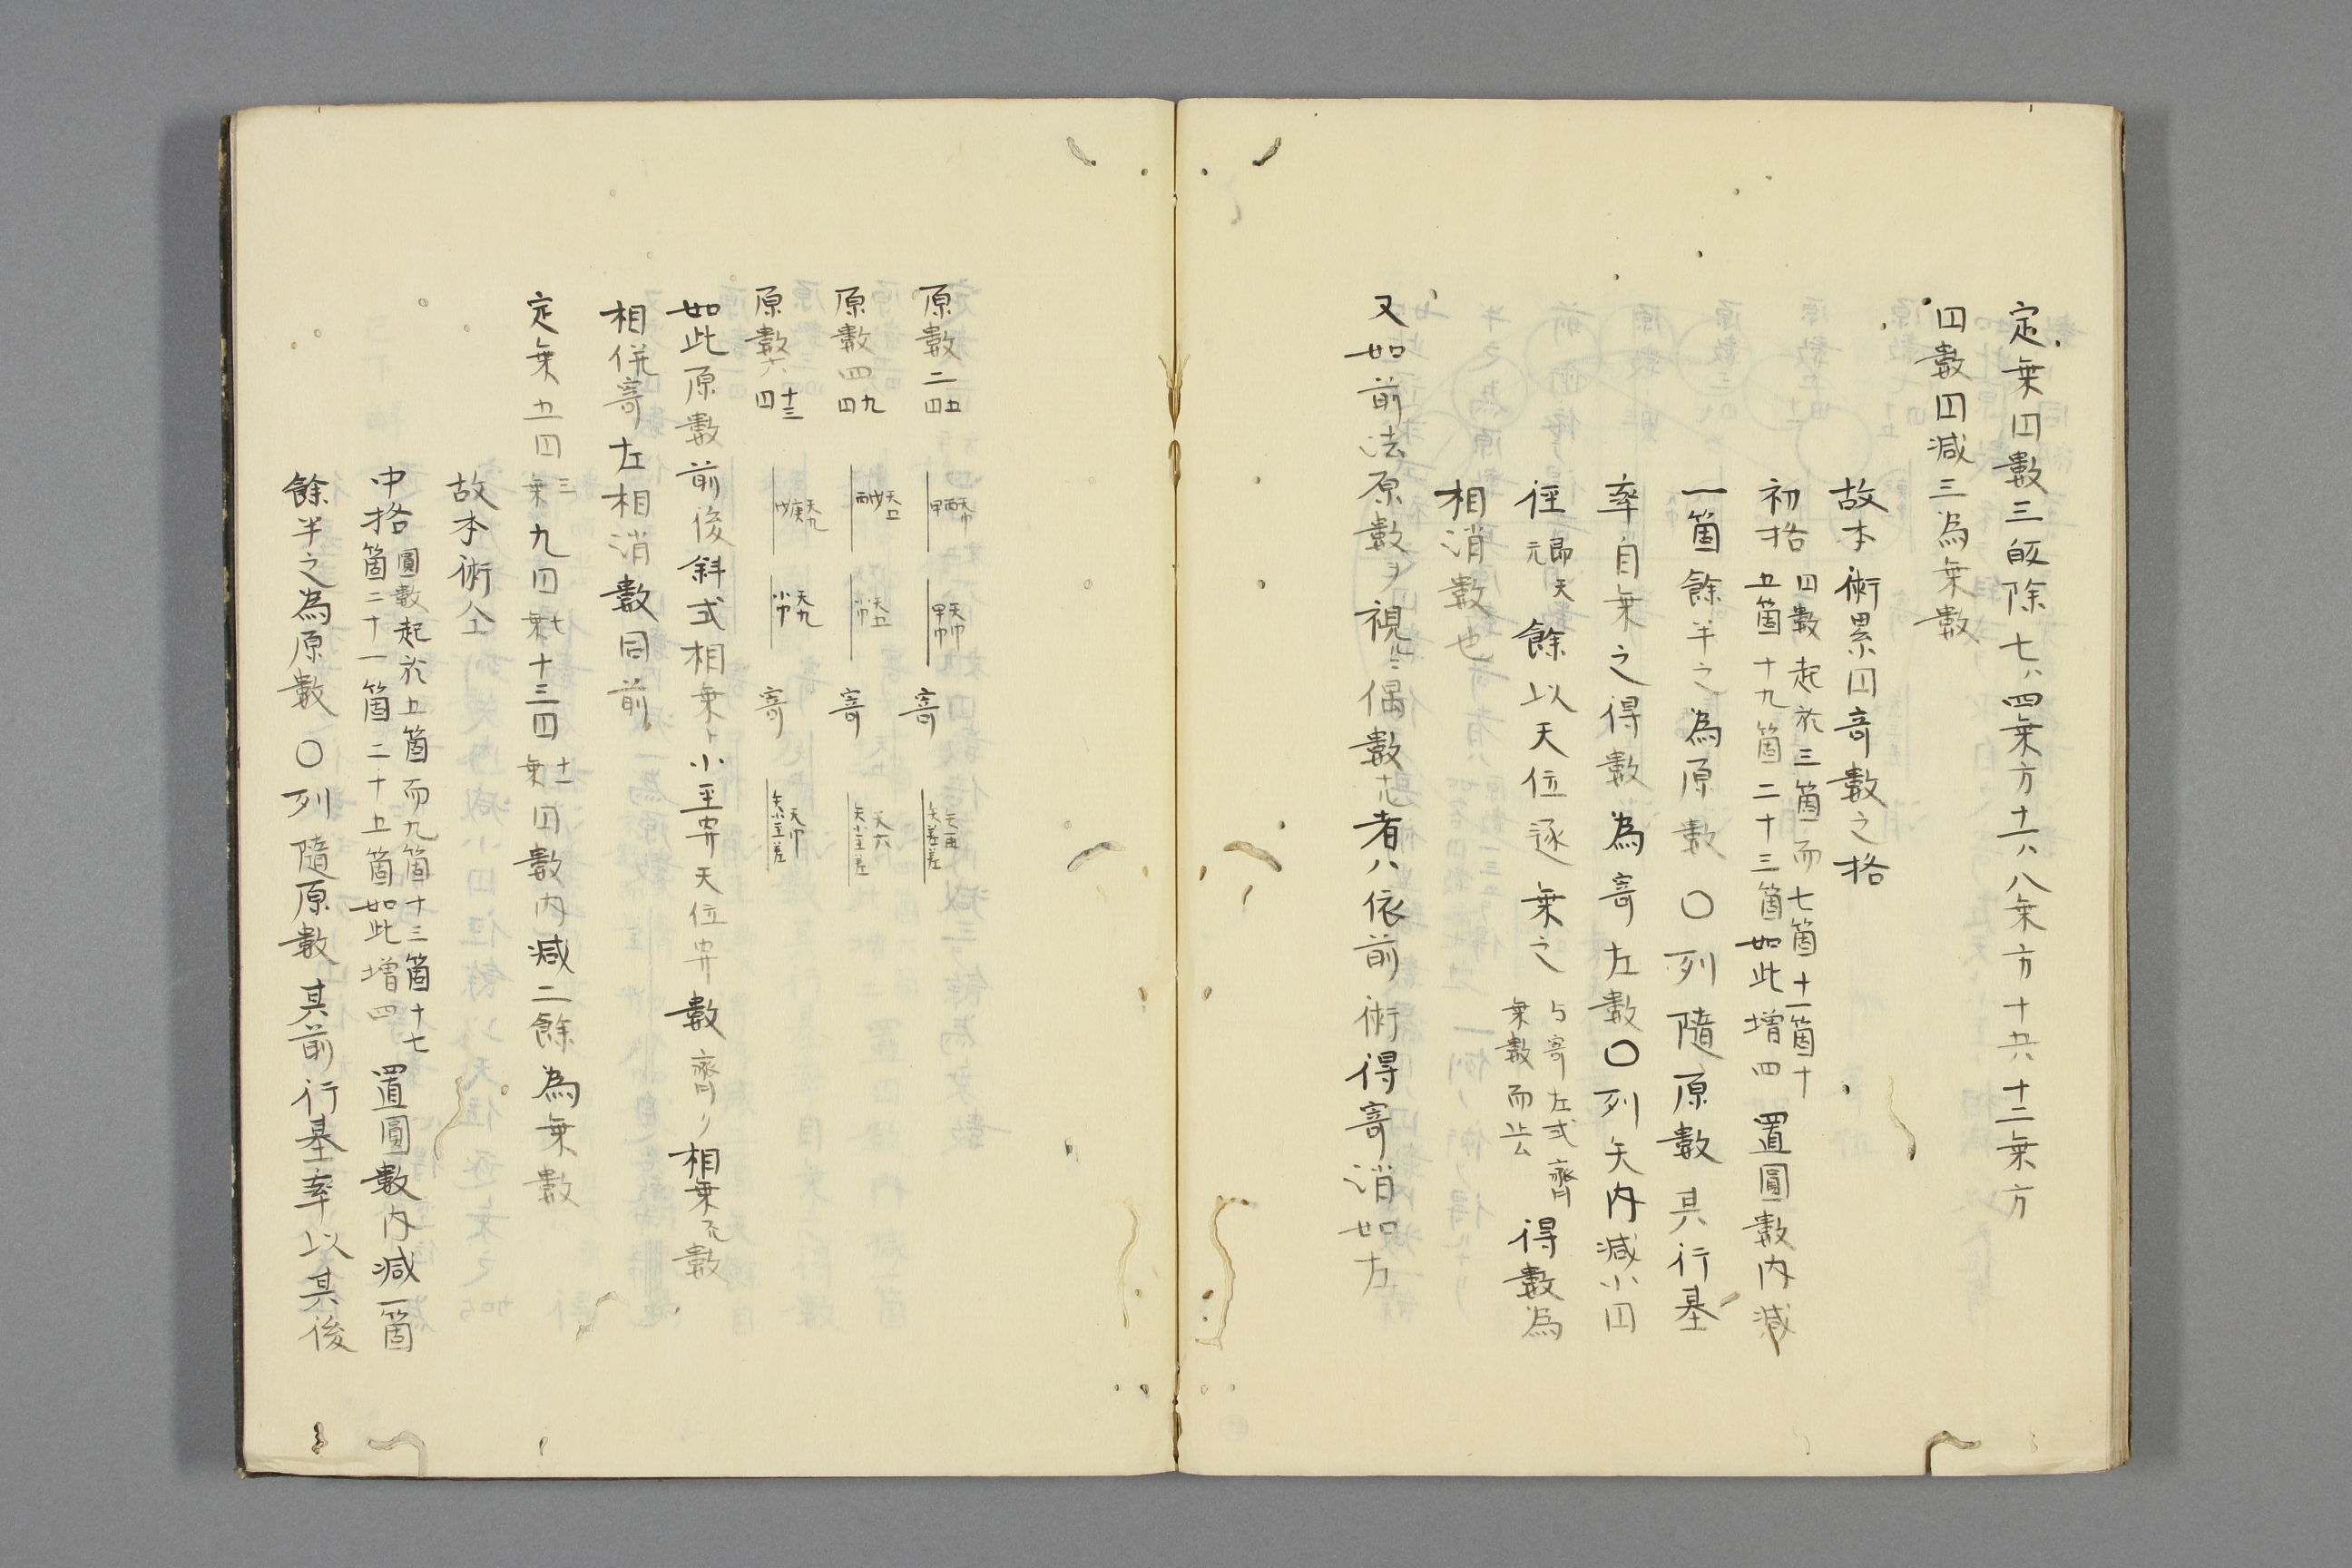 定乗囘數三皈除七ハ四乗方十一ハ八乗方十六ハ十二乗方
四數囘减三為乗數
故本術累囘竒數之格
初格 囘數起於三箇而七箇十一箇十
五箇十九箇二十三箇如此增四 置圓數内减
一箇餘半之為原數 〇列隨原數其行基
率自乗之得數為寄左數〇列矢内减小囘
徑 即天元 餘以天位逐乗之 与寄左式齊
乗數而止 得數為
相消數也
又如前法原數ヲ視ルニ偶數ナル者ハ依前術得寄消如左
原數二 五四
原數四 九四
原數六 十三四
寄
寄
寄
如此原數前後斜式相乗ト小至巾天位巾數齊リ相乗ル數
相併寄左相消數同前
定乗五囘三乗九囘七乗十三囘十一乗囘數内减二餘為乗數
故本術仝
中格 圓數起於五箇而九箇十三箇十七
箇二十一箇二十五箇如此增四 置圓數内减一箇
餘半之為原數 〇列隨原數其前行基率以其後